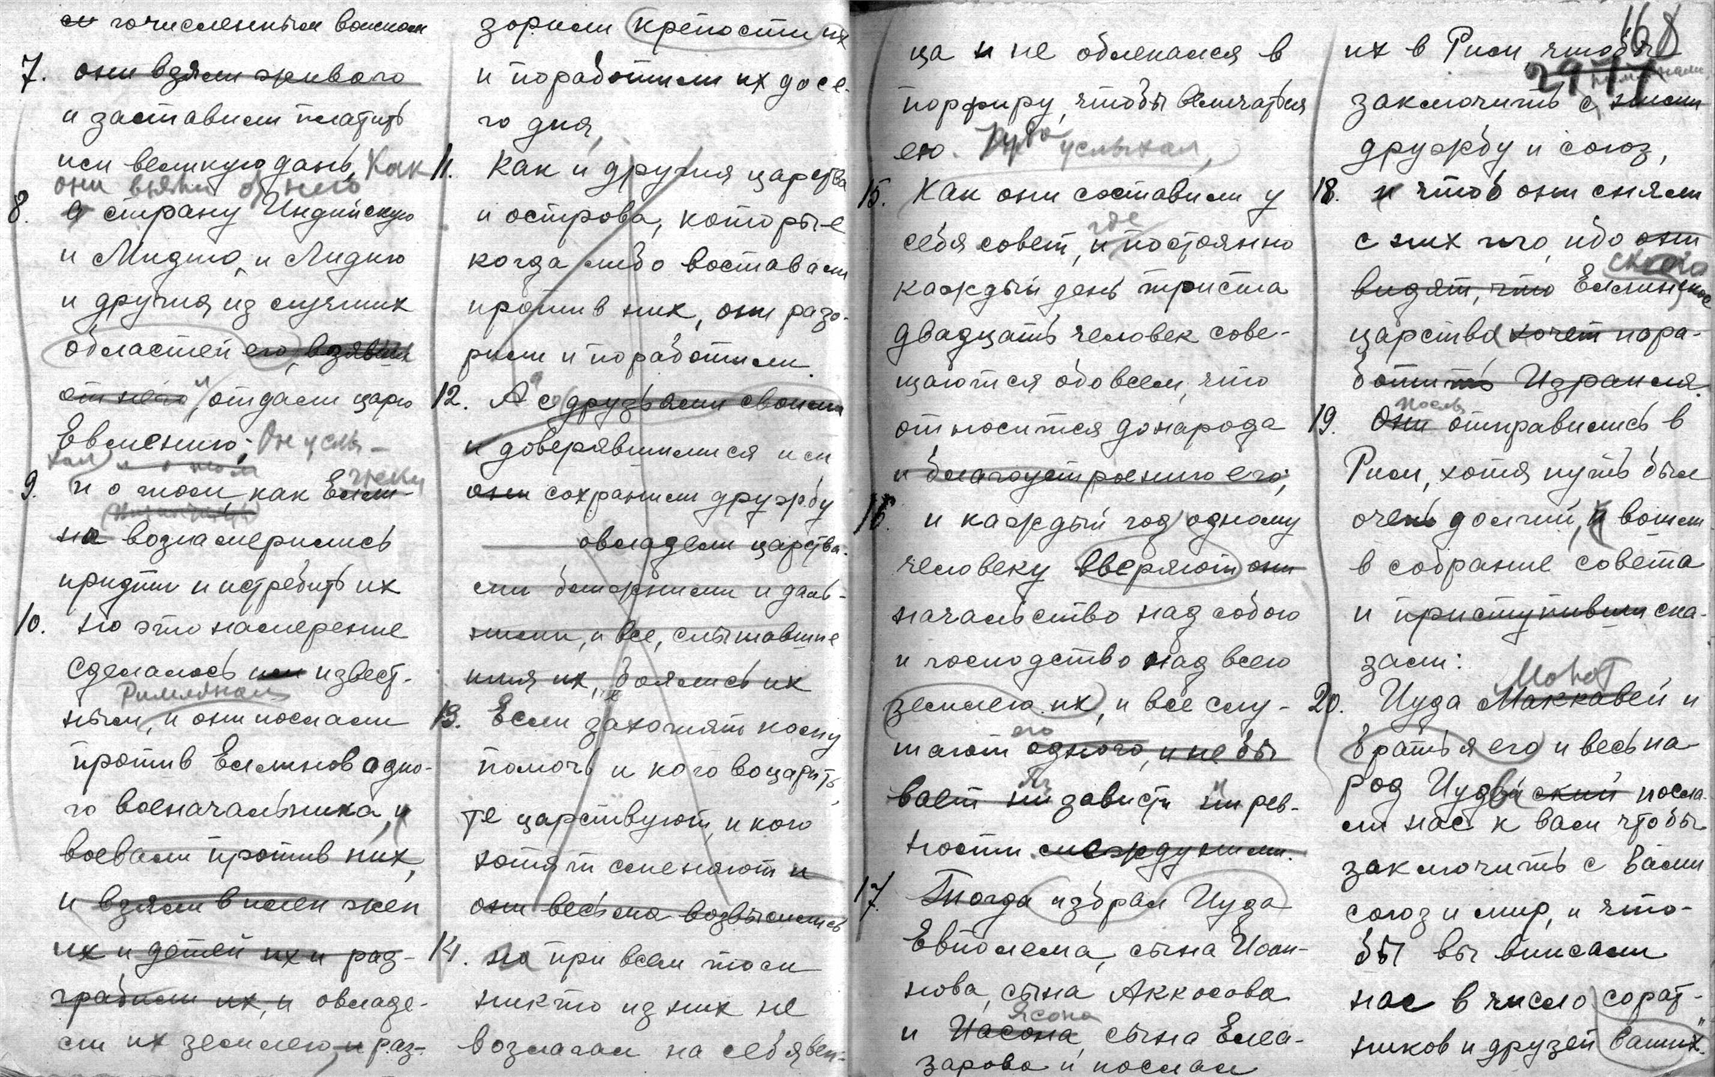 гочисленным войском
7. они взяли живого
и заставили платить
им великую дань, Как
они взяли от него
8. а страну Индийскую
и Мидию, и Лидию
и другия из лучших
областей его, взявши
от него и отдали царю
Евмению; Он услы-
хал и о том
9. и о том как Елли-
ны возмерились
придти и истребить их
10. но это намерение
сделалось им извест-
Римлянам
ным, и они послали
против Еллинов одно-
го военачальника, и
воевали против них,
и взяли в плен жен
их и детей их и раз-
грабили их, и овладе-
ли их землею, и раз-
зорили крепости их
и поработили их до се-
го дня,
11. Как и другия царства
и острова, которые
когда либо воставали
против них, они разо-
рили и поработили.
12. А с друзьями своими
и доверявшимися им
они сохранили дружбу
овладели царства-
ми ближними и даль-
ними, и все, слышавшие
имя их, боялись их
13. Если захотят кому
помочь и кого воцарить,
те царствуют, и кого
хотят сменяют и
они весьма возвысились
14. но при всем том
никто из них не
возлагал на себя вен-
168
2977
ца и не облекался в
порфиру, чтобы величаться
ею. Иуда услыхал,
15. Как они составили у
где
себя совет, и постоянно
каждый день триста
двадцать человек сове-
щаются обо всем, что
относится до народа
и благоустроению его;
16. и каждый год одному
человеку вверяют они
начальство над собою
и господство над всею
землею их, и все слу-
его
шают одного, и не бы-
вает ни зависти ни рев-
ности между ними.
17. Тогда избрал Иуда
Евполема, сына Иоан-
нова, сына Аккосова
Ясона
и Иасона, сына Елеа-
зарова и послал
их в Рим чтобы
заключить с ними
дружбу и союз,
18. и чтоб они сняли
с них иго, ибо они
видят, что Еллинское
царство хочет пора-
ботить Израиля.
послы
19. Они отправились в
Рим, хотя путь был
очень долгий, и вошли
в собрание совета
и приступивши ска-
зали:
20. Иуда Маккавей и
братья его и весь на-
род Иудейский посла-
ли нас к вам чтобы
заключить с вами
союз и мир, и что-
бы вы вписали
нас в число сорат-
ников и друзей ваших.